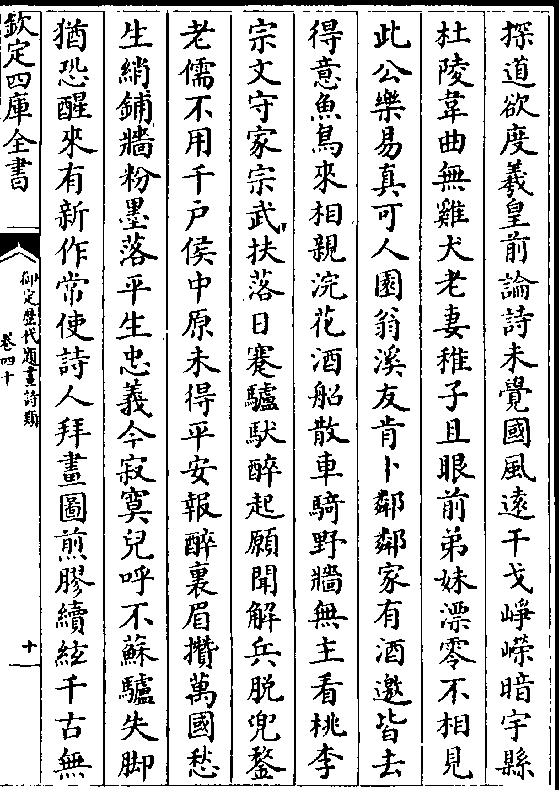 探道欲度羲皇前論詩未覺國風遠干戈崢嶸暗宇縣
杜陵韋曲無雞犬老妻稚子且眼前弟妹漂零不相見
此公樂易真可人園翁溪友肯卜鄰鄰家有酒邀皆去
得意魚鳥來相親浣花酒船散車騎野牆無主看桃李
宗文守家宗武扶落日蹇驢馱醉起願聞解兵脫兜鍪
老儒不用千戶侯中原未得平安報醉裏眉攢萬國愁
生綃鋪牆粉墨落平生忠義今寂寞兒呼不蘇驢失脚
猶恐醒來有新作常使詩人拜畫圖煎膠續絃千古無
欽定四庫全書
御定歷代題畫詩類
卷四十
十